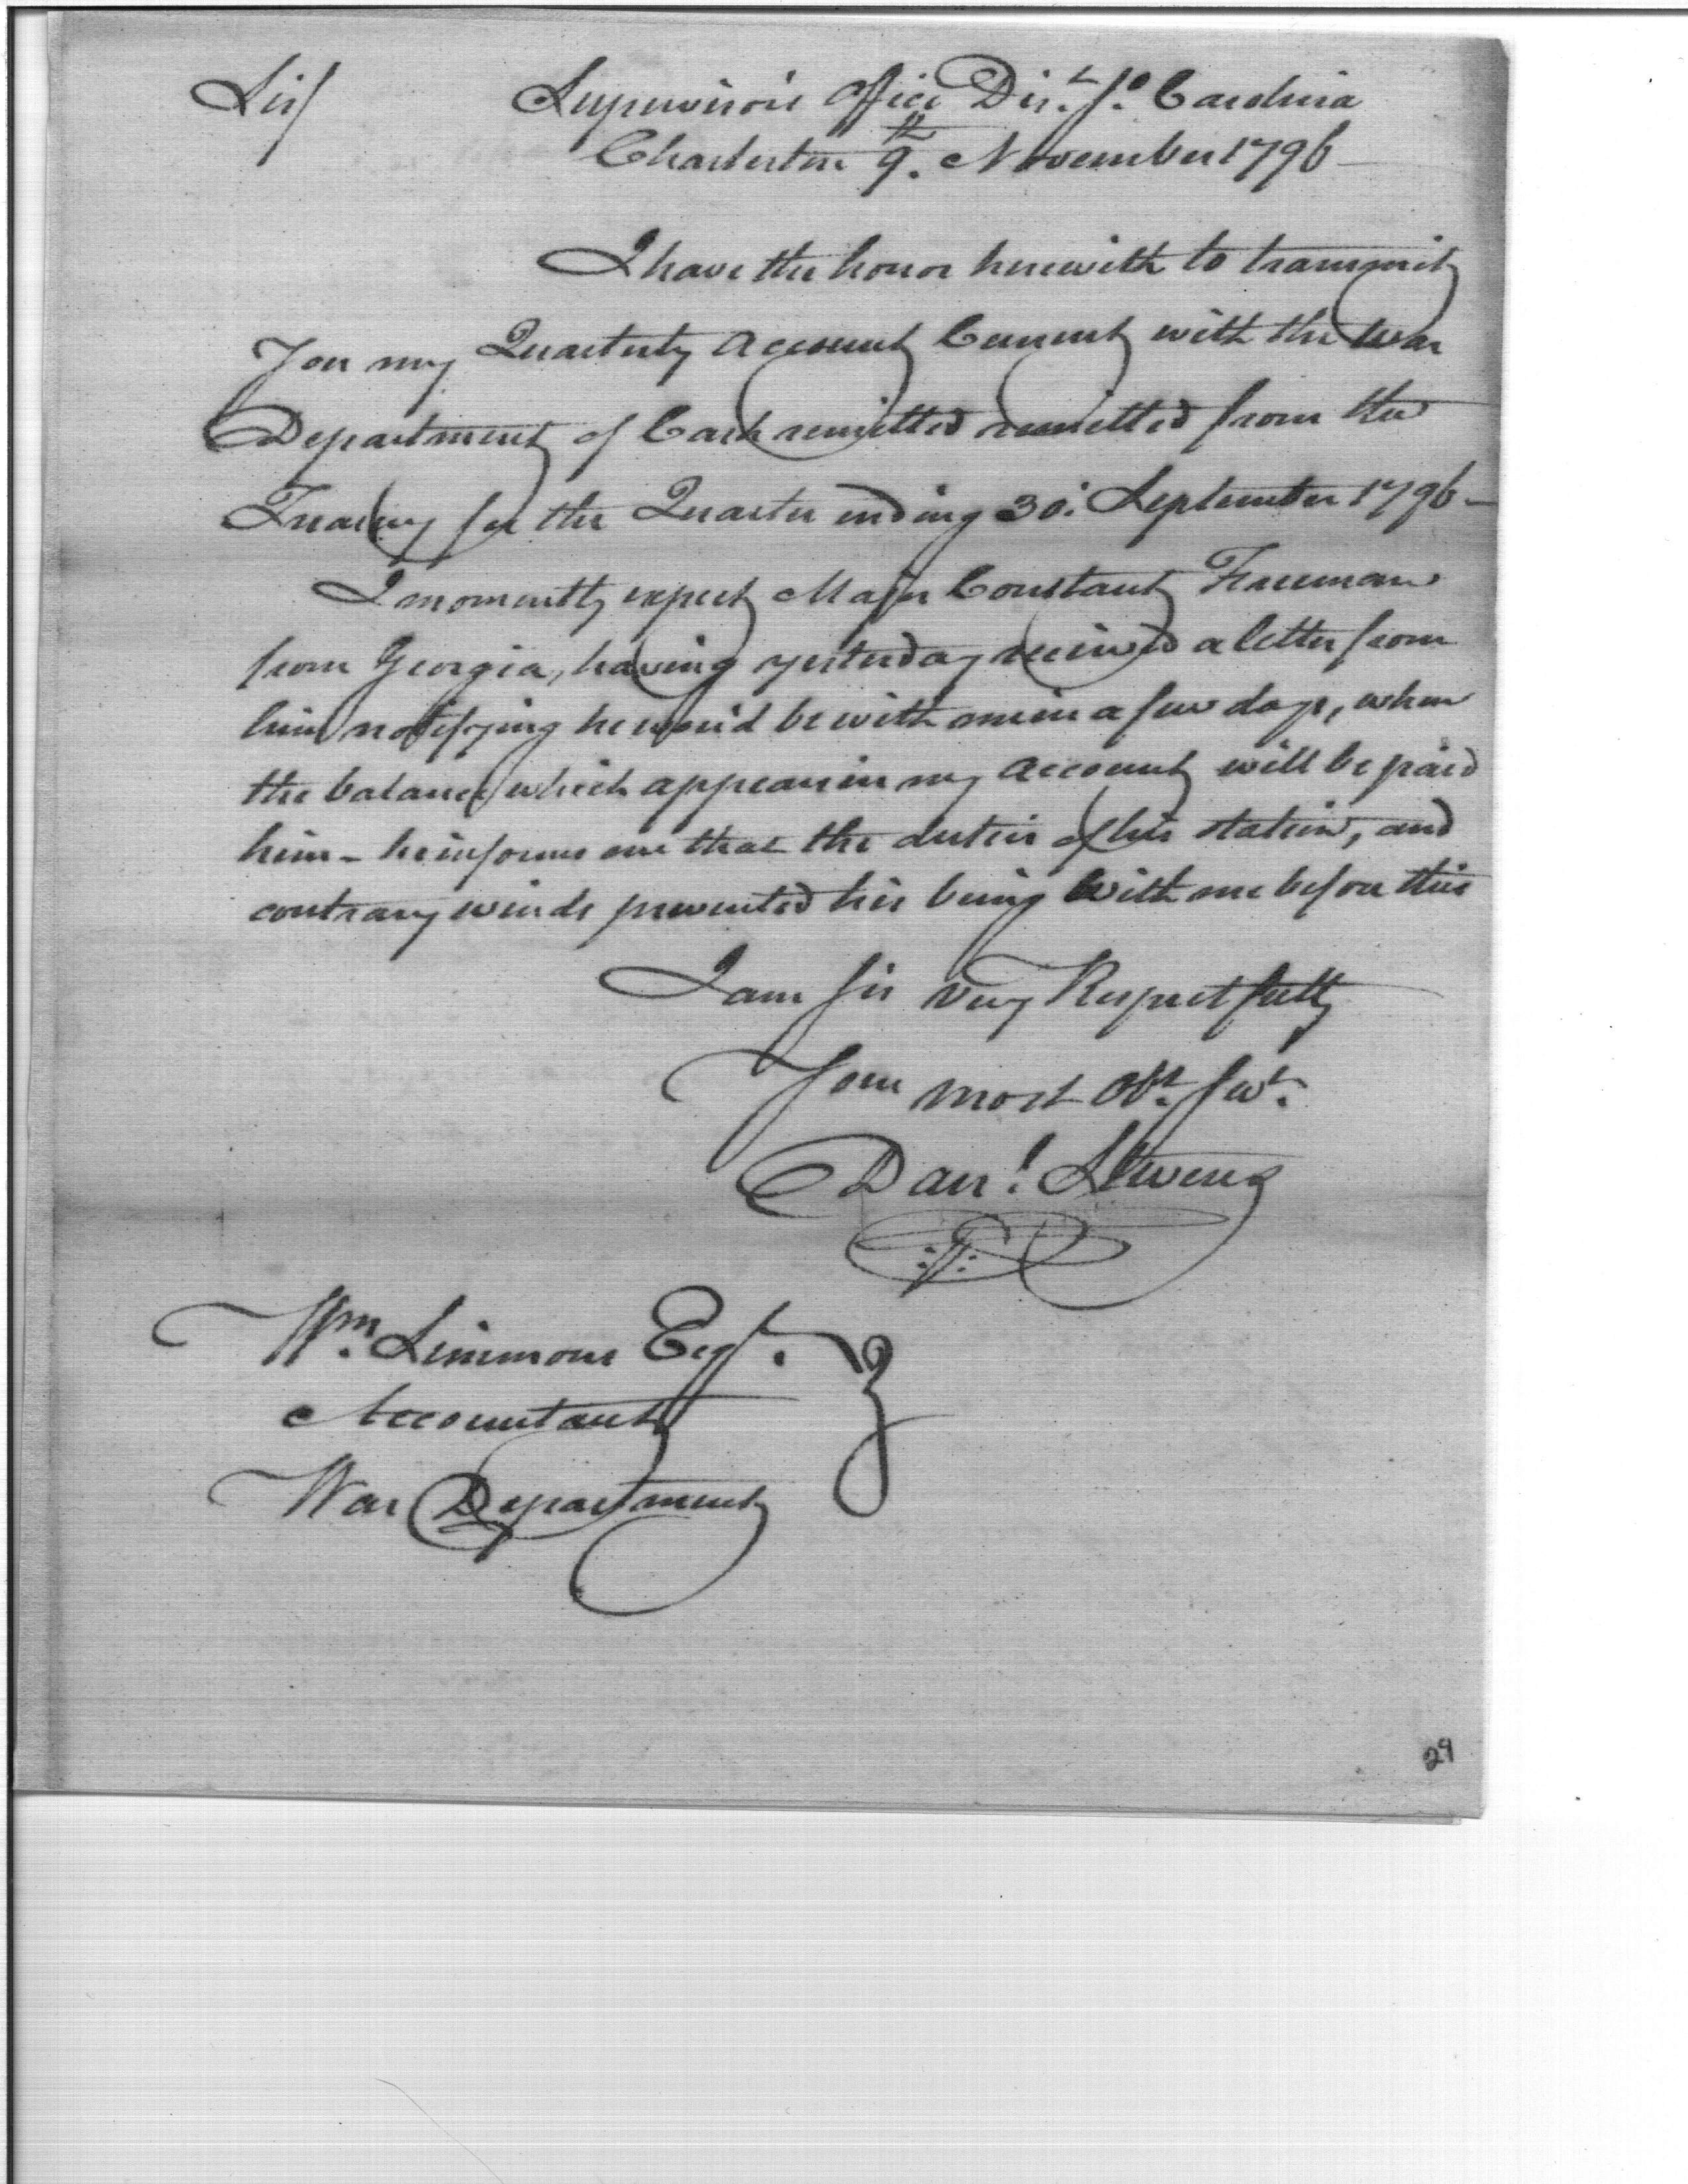 Sir/ Supervisor's Office Dist. So. Carolina
Charleston 9th. November 1796
I have the honor herewith to transmit
You my Quarterly Account Current with the War
Department of Cash remitted remitted from the
Treasury for the Quarter ending 30: September 1796 -
I momently expect Major Constant Freeman
from Georgia, having yesterday received a letter from
him notifying he wou'd be with me in a few days, when
the balance which appears in my Account will be paid
him - he informs me that the duties of his station, and
contrary winds prevented his being with me before this
I am Sir Very Respectfully
Your most Obt. Servt.
Danl. Stevens
Wm. Simmons Esqr.
Accountant
War Department
29